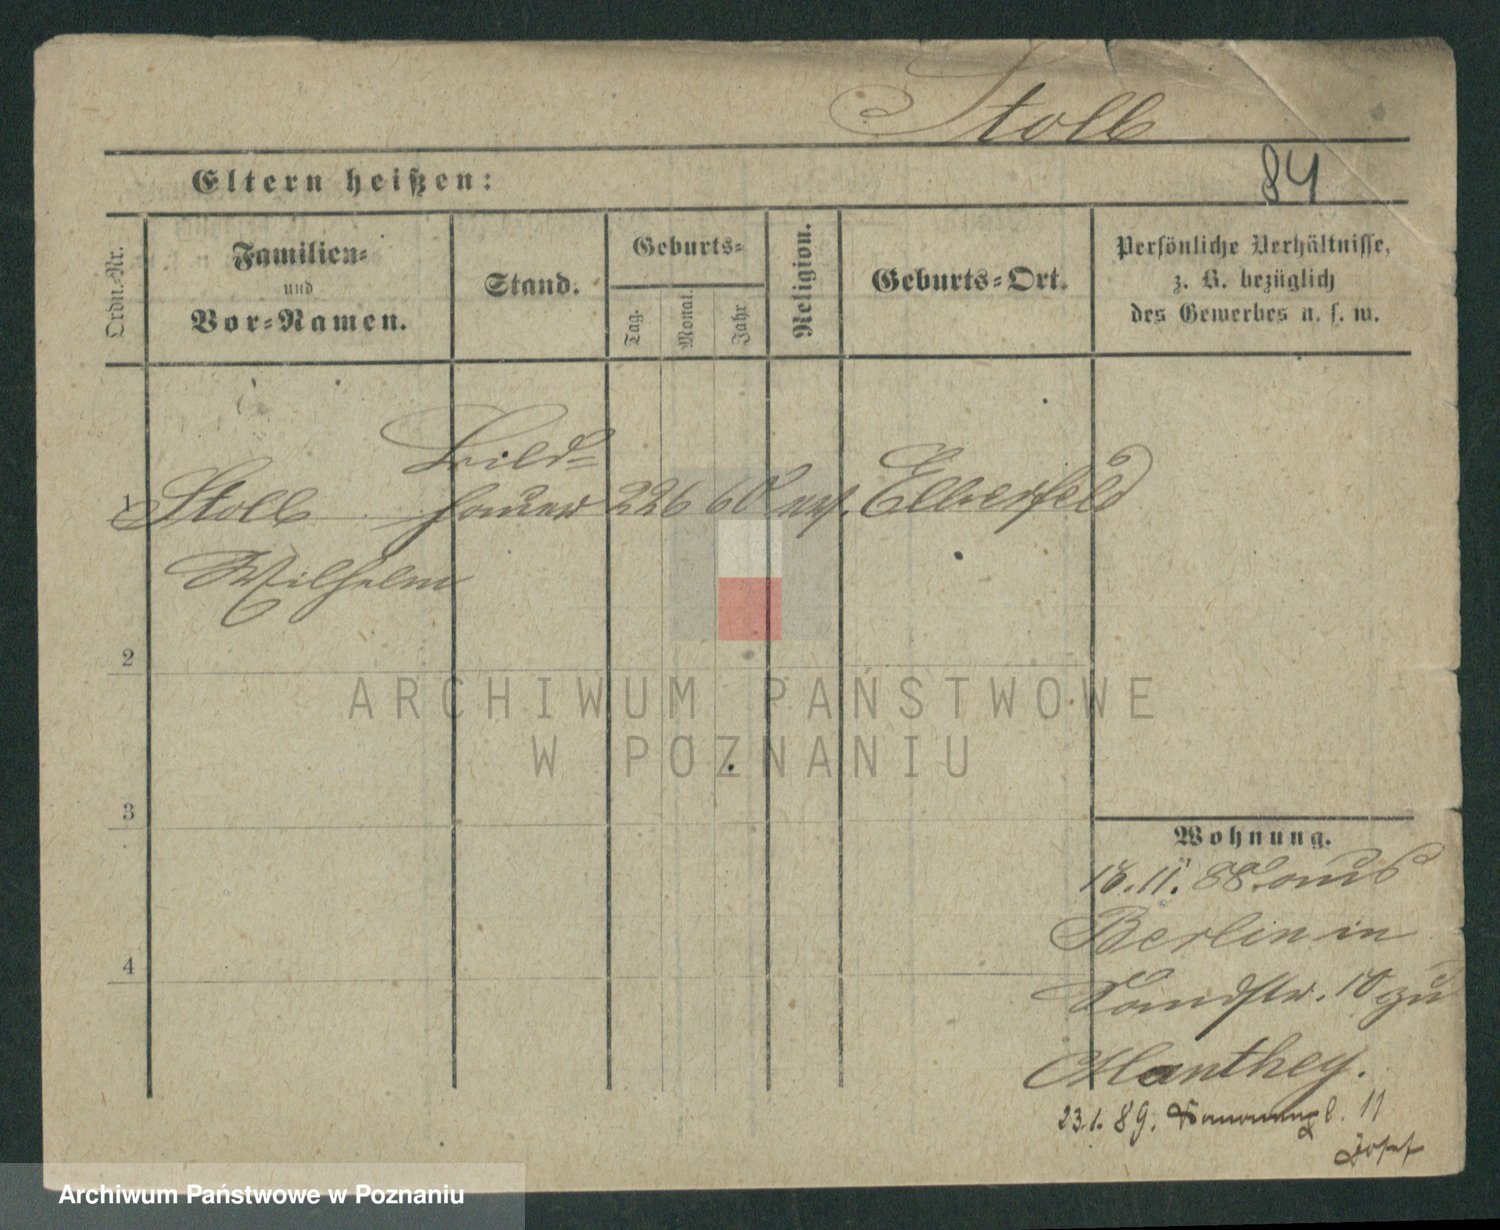 Stoll
84
Eltern heißen:
Ordn.-Nr.
Familien-
und
Vor-Namen.
Stand.
Geburts-
Tag.
Monat.
Jahr.
Religion.
Geburts-Ort.
Persönliche Verhältnisse,
z. B. bezüglich
des Gewerbes u. s. w.
1
Stoll
Wilhelm
Bild-
hauer
22 6 60
Elberfeld
2
3
4
Wohnung.
11. 88. aus
Berlin in
10 zu
Manthey.
23.1.89. 11
ARCHIWUM PAŃSTWOWE
W POZNANIU
Archiwum Państwowe w Poznaniu